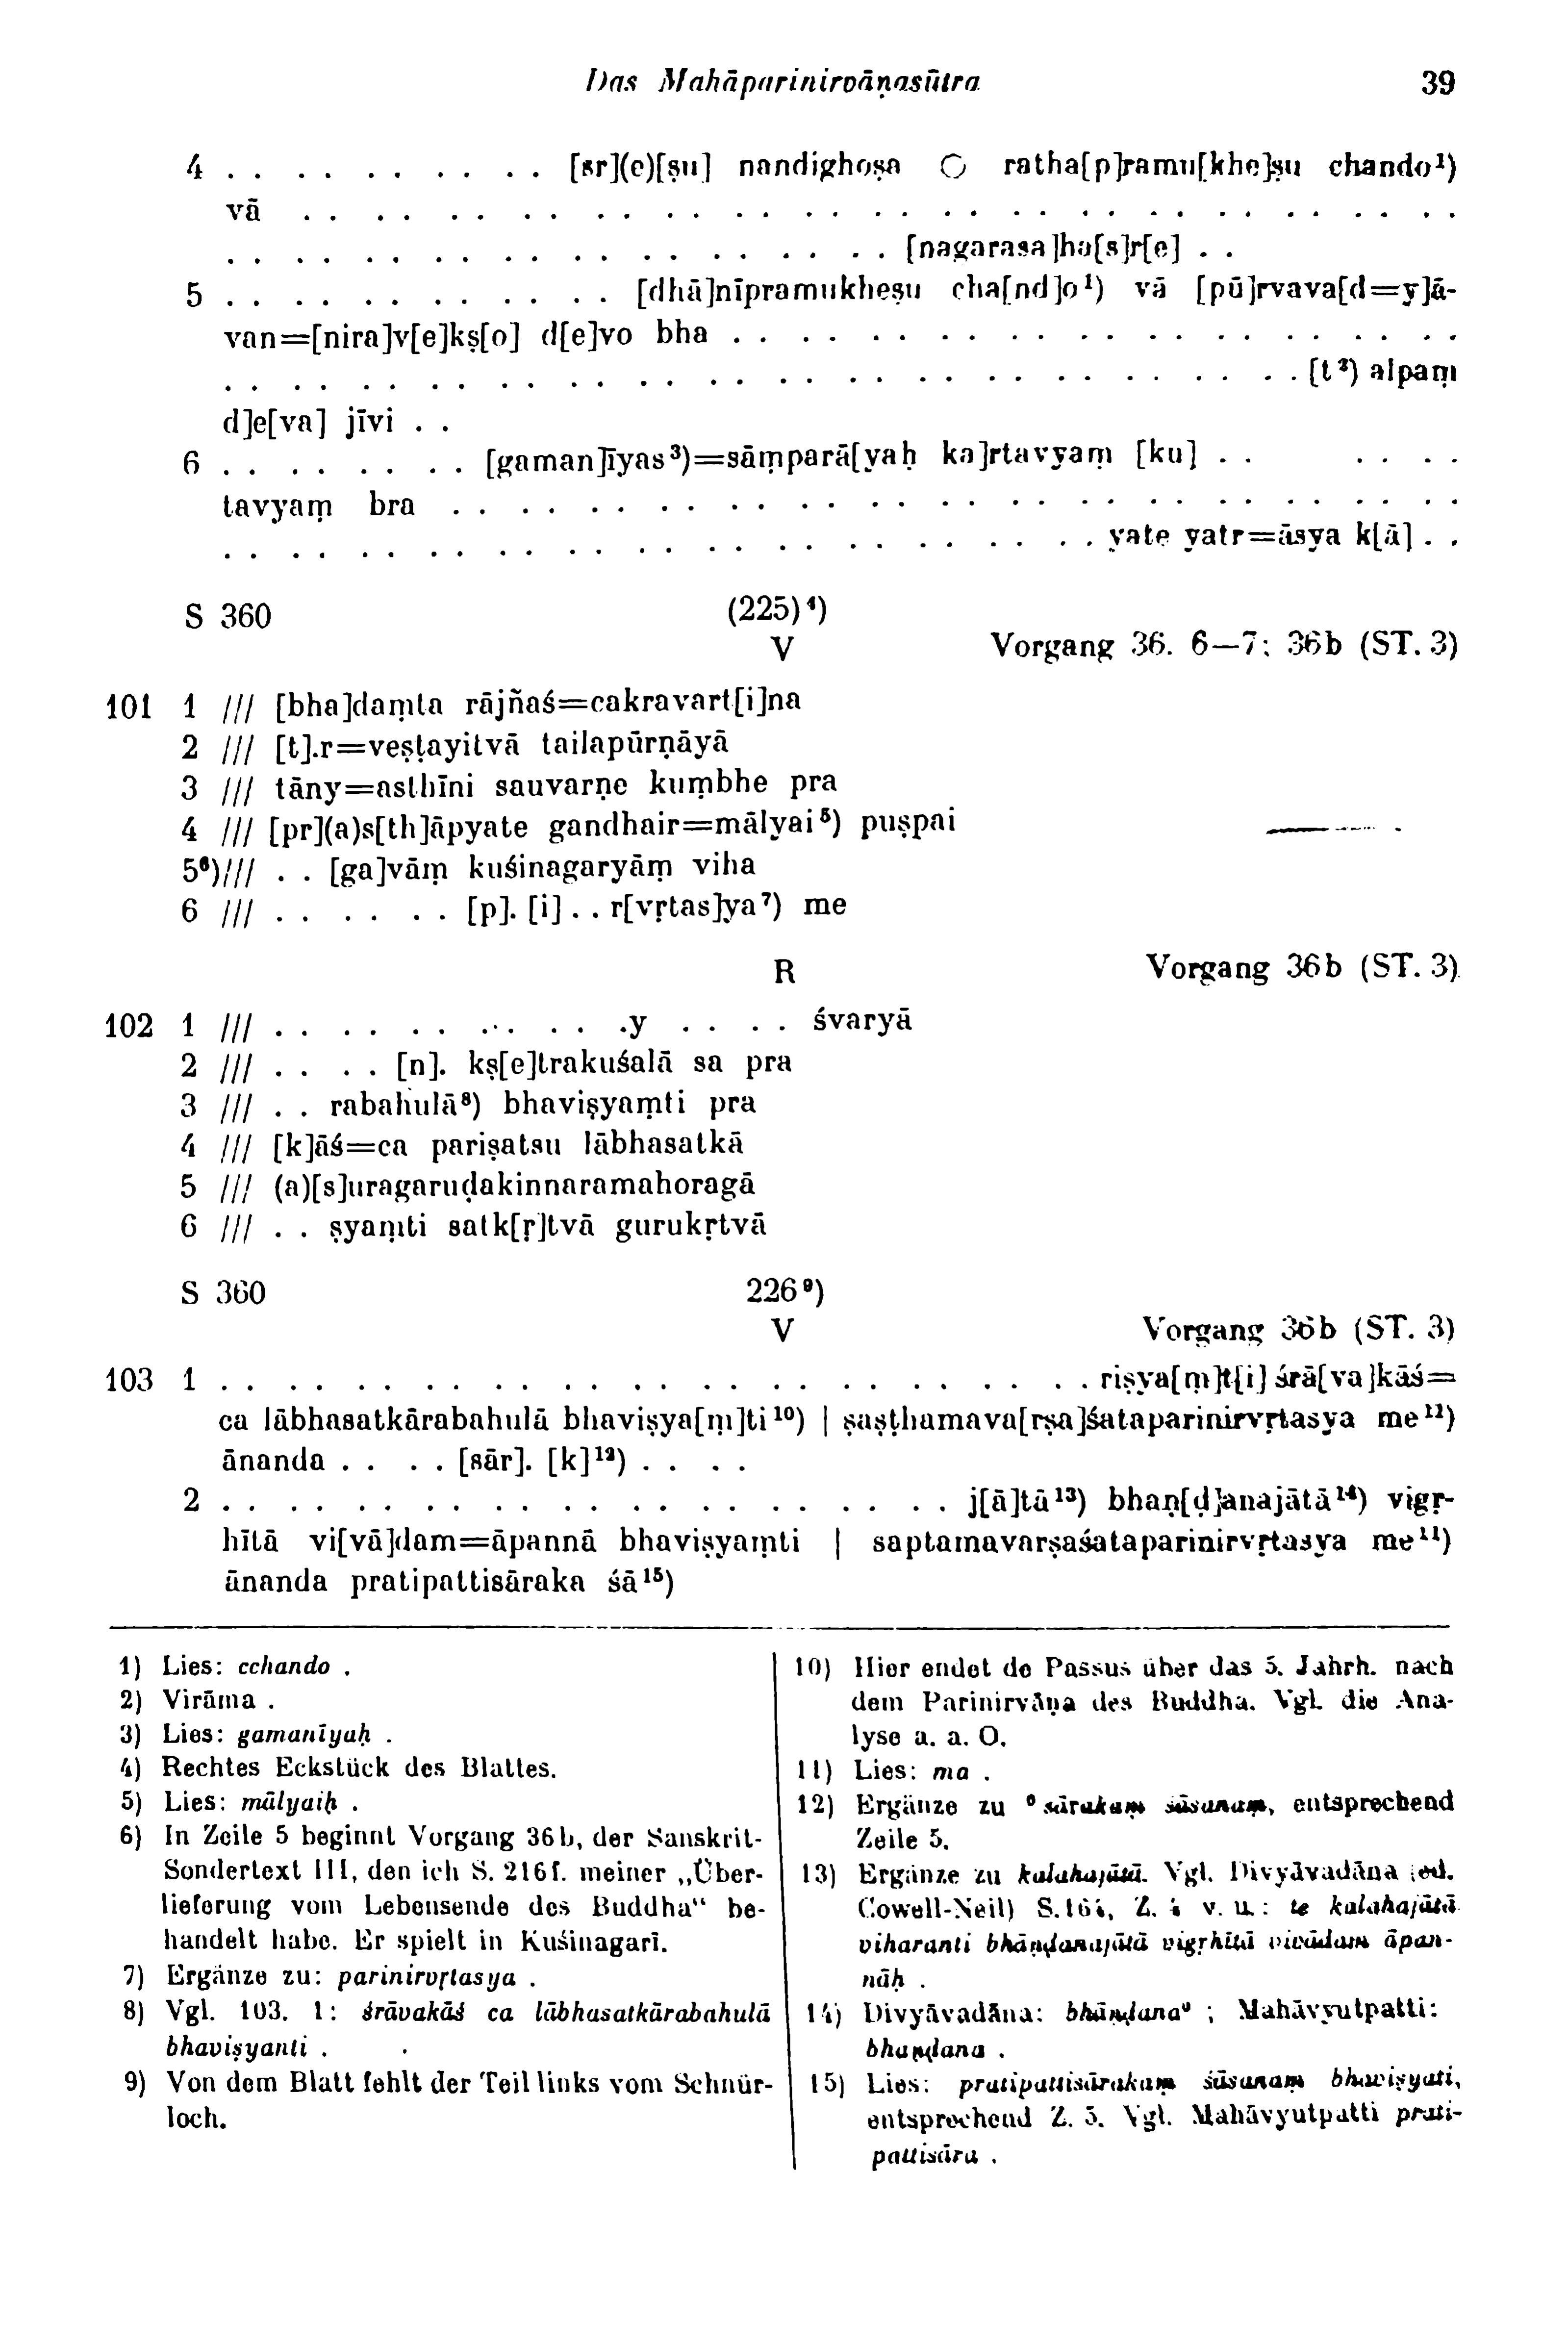 Das Mahāparinirvāṇasūtra 39
4 . . . . . . . . . . [sr](e)[ṣu] nandighoṣa ○ ratha[p]ramu[khe]ṣu chando¹)
vā . . . . . . . . . . . . . . . . . . . . . . . . . . . . . . . . . .
. . . . . . . . . . . . . . . . . . . . [nagarasa]ha[s]r[e] . .
5 . . . . . . . . . . . . [dhā]nīpramukheṣu cha[nd]o¹) vā [pū]rvava[d=y]ā-
van=[nira]v[e]kṣ[o] d[e]vo bha . . . . . . . . . . . . . . . . . . . . . .
. . . . . . . . . . . . . . . . . . . . . . . . . . . . . . . . [t²) alpaṃ
d]e[va] jīvi . .
6 . . . . . . . . [gaman]īyas³)=sāṃparā[yaḥ ka]rtavyaṃ [ku] . . . . . .
tavyaṃ bra . . . . . . . . . . . . . . . . . . . . . . . . . . . . . .
. . . . . . . . . . . . . . . . . . . . . . . . . . yate yatr=āsya k[ā] . .
S 360 (225)⁴)
V Vorgang 36. 6—7; 36b (ST. 3)
101 1 /// [bha]daṃta rājñaś=cakravart[i]na
2 /// [t].r=veṣṭayitvā tailapūrṇāyā
3 /// tāny=asthīni sauvarṇe kuṃbhe pra
4 /// [pr](a)s[th]āpyate gandhair=mālyai⁵) puṣpai
5⁶)/// . . [ga]vāṃ kuśinagaryāṃ viha
6 /// . . . . . . [p]. [i] . . r[vṛtas]ya⁷) me
R Vorgang 36b (ST. 3)
102 1 /// . . . . . . . . . . .y . . . . śvaryā
2 /// . . . . [n]. kṣ[e]trakuśalā sa pra
3 /// . . rabahulā⁸) bhaviṣyaṃti pra
4 /// [k]āś=ca pariṣatsu lābhasatkā
5 /// (a)[s]uragaruḍakinnaramahoragā
6 /// . . ṣyaṃti satk[ṛ]tvā gurukṛtvā
S 360 226⁹)
V Vorgang 36b (ST. 3)
103 1 . . . . . . . . . . . . . . . . . . . . . . . . . . riṣya[ṃ]t[i] śrā[va]kāś=
ca lābhasatkārabahulā bhaviṣya[ṃ]ti¹⁰) | ṣaṣṭhamava[rṣa]śataparinirvṛtasya me¹¹)
ānanda . . . . [sār]. [k]¹²) . . . .
2 . . . . . . . . . . . . . . . . . . . . . . j[ā]tā¹³) bhaṇ[ḍ]anajātā¹⁴) vigṛ-
hītā vi[vā]dam=āpannā bhaviṣyaṃti | saptamavarṣaśataparinirvṛtasya me¹¹)
ānanda pratipattisāraka śā¹⁵)
1) Lies: cchando .
2) Virāma .
3) Lies: gamanīyaḥ .
4) Rechtes Eckstück des Blattes.
5) Lies: mālyaiḥ .
6) In Zeile 5 beginnt Vorgang 36b, der Sanskrit-
Sondertext III, den ich S. 216f. meiner „Über-
lieferung vom Lebensende des Buddha“ be-
handelt habe. Er spielt in Kuśinagarī.
7) Ergänze zu: parinirvṛtasya .
8) Vgl. 103. 1: śrāvakāś ca lābhasatkārabahulā
bhaviṣyanti .
9) Von dem Blatt fehlt der Teil links vom Schnür-
loch.
10) Hier endet de Passus über das 5. Jahrh. nach
dem Parinirvāṇa des Buddha. Vgl. die Ana-
lyse a. a. O.
11) Lies: ma .
12) Ergänze zu °sārakaṃ śāsanaṃ, entsprechend
Zeile 5.
13) Ergänze zu kalahajātā. Vgl. Divyāvadāna (ed.
Cowell-Neil) S. 164, Z. 4 v. u.: te kalahajātā
viharanti bhāṇḍanajātā vigṛhītā vivādam āpan-
nāḥ .
14) Divyāvadāna: bhāṇḍana° ; Mahāvyutpatti:
bhaṇḍana .
15) Lies: pratipattisārakaṃ śāsanaṃ bhaviṣyati,
entsprechend Z. 5. Vgl. Mahāvyutpatti prati-
pattisāra .